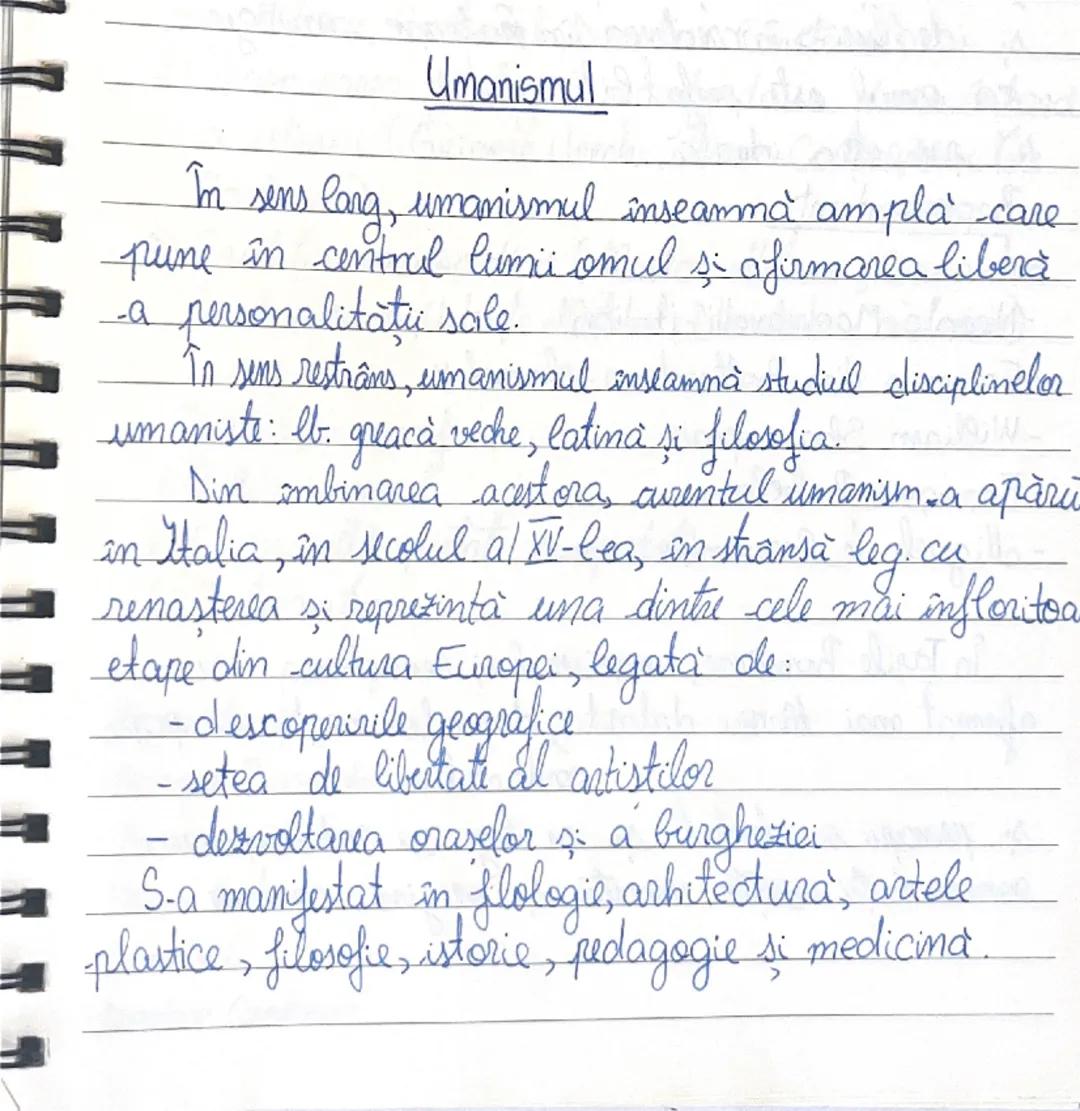 Umanismul
În sens larg, umanismul înseamnă amplă care
pune în centrul lumii omul și afirmarea liberă
a personalității sale.
În sens restrâns, umanismul înseamnă studiul disciplinelor
umaniste: lb. greacă veche, latină și filosofia.
Din îmbinarea acestora, curentul umanism a apărut
în Italia, în secolul al XV-lea, în strânsă leg. cu
renașterea și reprezintă una dintre cele mai înfloritoa
etape din cultura Europei, legată de:
- descoperirile geografice
- setea de libertate al artiștilor
- dezvoltarea orașelor și a burgheziei
S-a manifestat în filologie, arhitectură, artele
plastice, filosofie, istorie, pedagogie și medicină.